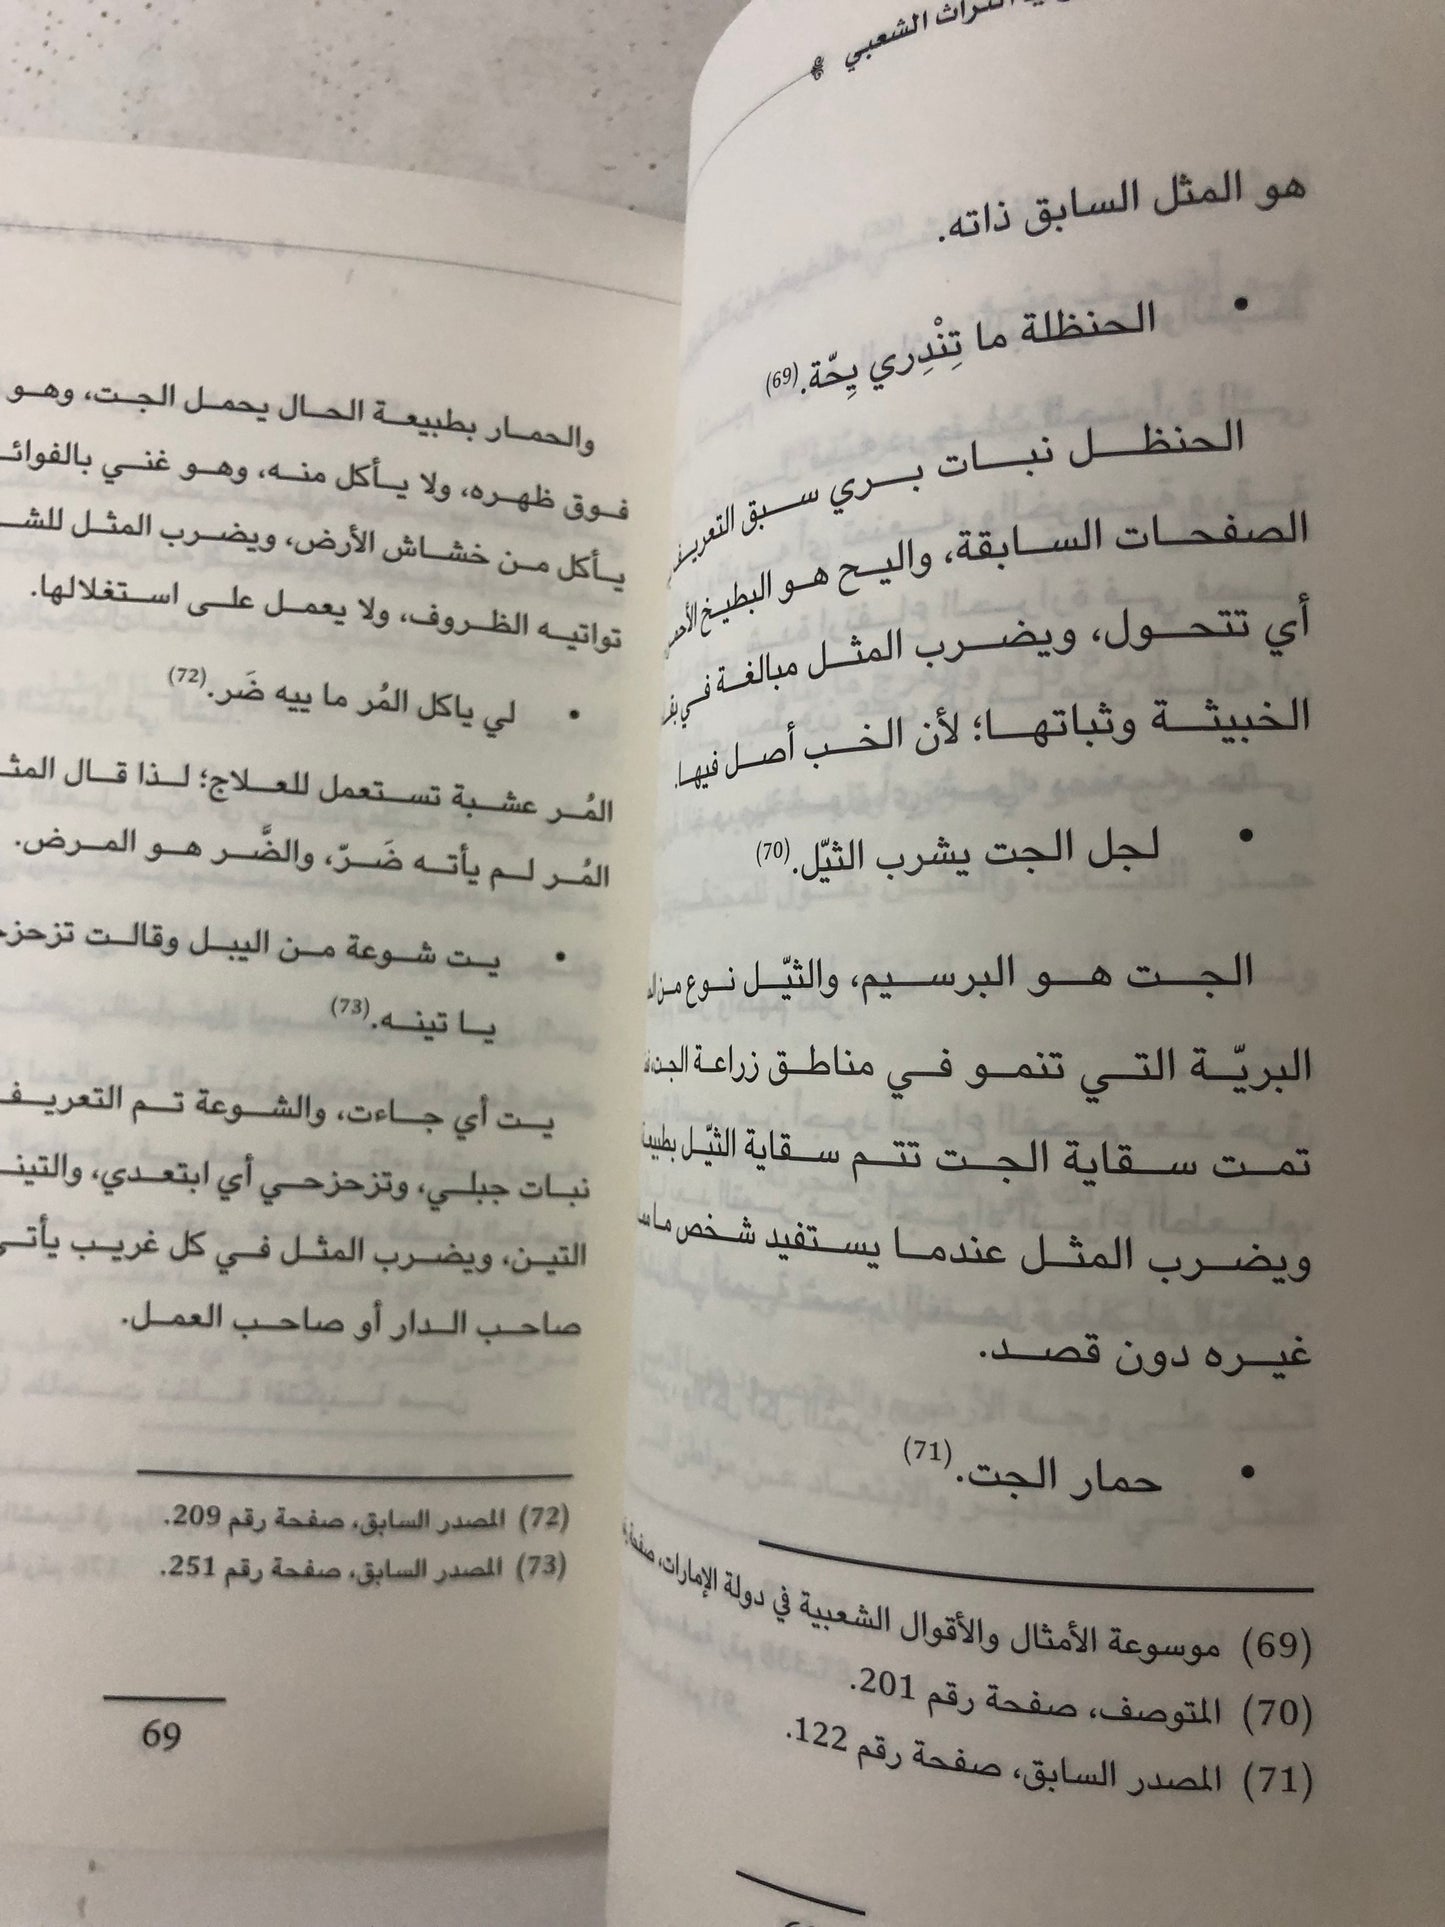 التراث الشعبي
هو المثل السابق ذاته.
• الحنظلة ما تِنْدِري يِحّة.(69)
الحنظل نبات بري سبق التعريف
الصفحات السابقة، واليح هو البطيخ
أي تتحول، ويضرب المثل مبالغة في
الخبيثة وثباتها؛ لأن الخب أصل فيها.
• لجل الجت يشرب الثيّل.(70)
الجت هو البرسيم، والثيّل نوع من
البريّة التي تنمو في مناطق زراعة
تمت سقاية الجت تتم سقاية الثيّل
ويضرب المثل عندما يستفيد شخص ما
غيره دون قصد.
• حمار الجت.(71)
(69) موسوعة الأمثال والأقوال الشعبية في دولة الإمارات،
(70) المتوصف، صفحة رقم 201.
(71) المصدر السابق، صفحة رقم 122.
والحمار بطبيعة الحال يحمل الجت، وهو
فوق ظهره، ولا يأكل منه، وهو غني
يأكل من خشاش الأرض، ويضرب المثل
تواتيه الظروف، ولا يعمل على استغلالها.
• لي ياكل المُر ما ييه ضَر.(72)
المُر عشبة تستعمل للعلاج؛ لذا قال
المُر لم يأته ضَرّ، والضَّر هو المرض.
• يت شوعة من اليبل وقالت
يا تينه.(73)
يت أي جاءت، والشوعة تم التعريف
نبات جبلي، وتزحزحي أي ابتعدي،
التين، ويضرب المثل في كل غريب يأتي
صاحب الدار أو صاحب العمل.
(72) المصدر السابق، صفحة رقم 209.
(73) المصدر السابق، صفحة رقم 251.
69